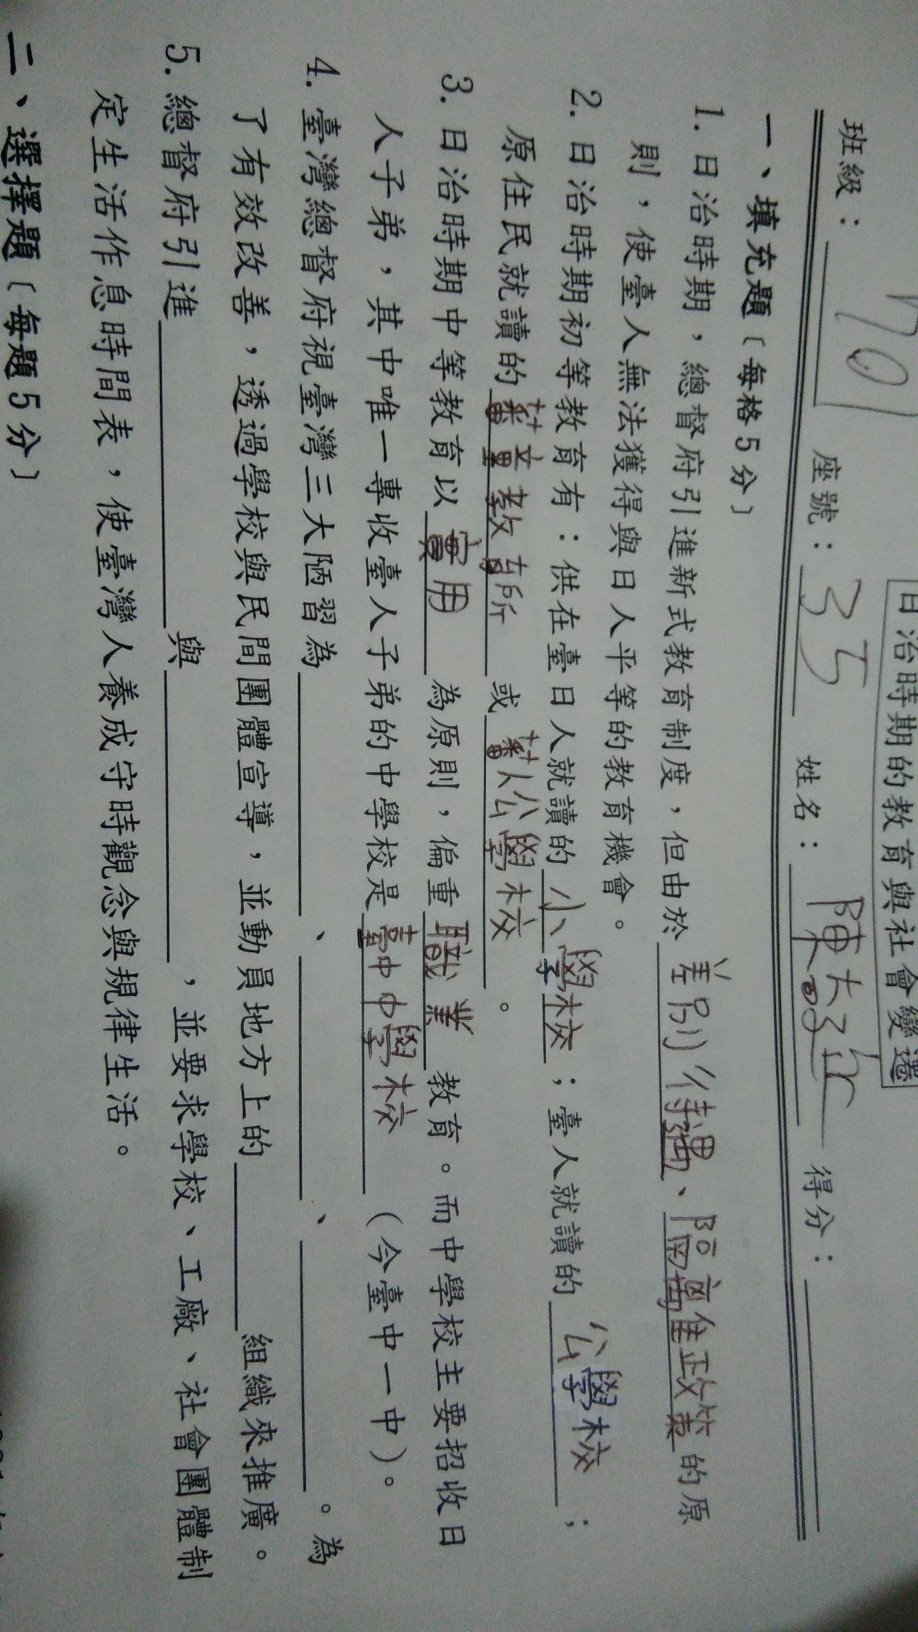 日治時期的教育與社會變遷
班級：701 座號：35 姓名：陳 得分：
一、填充題〔每格5分〕
1. 日治時期，總督府引進新式教育制度，但由於差別待遇、隔離政策的原
則，使臺人無法獲得與日人平等的教育機會。
2. 日治時期初等教育有：供在臺日人就讀的小學校；臺人就讀的公學校；
原住民就讀的蕃童教育所或蕃人公學校。
3. 日治時期中等教育以實用為原則，偏重職業教育。而中學校主要招收日
人子弟，其中唯一專收臺人子弟的中學校是臺中中學校（今臺中一中）。
4. 臺灣總督府視臺灣三大陋習為、、。為
了有效改善，透過學校與民間團體宣導，並動員地方上的組織來推廣。
5. 總督府引進與，並要求學校、工廠、社會團體制
定生活作息時間表，使臺灣人養成守時觀念與規律生活。
二、選擇題〔每題5分〕